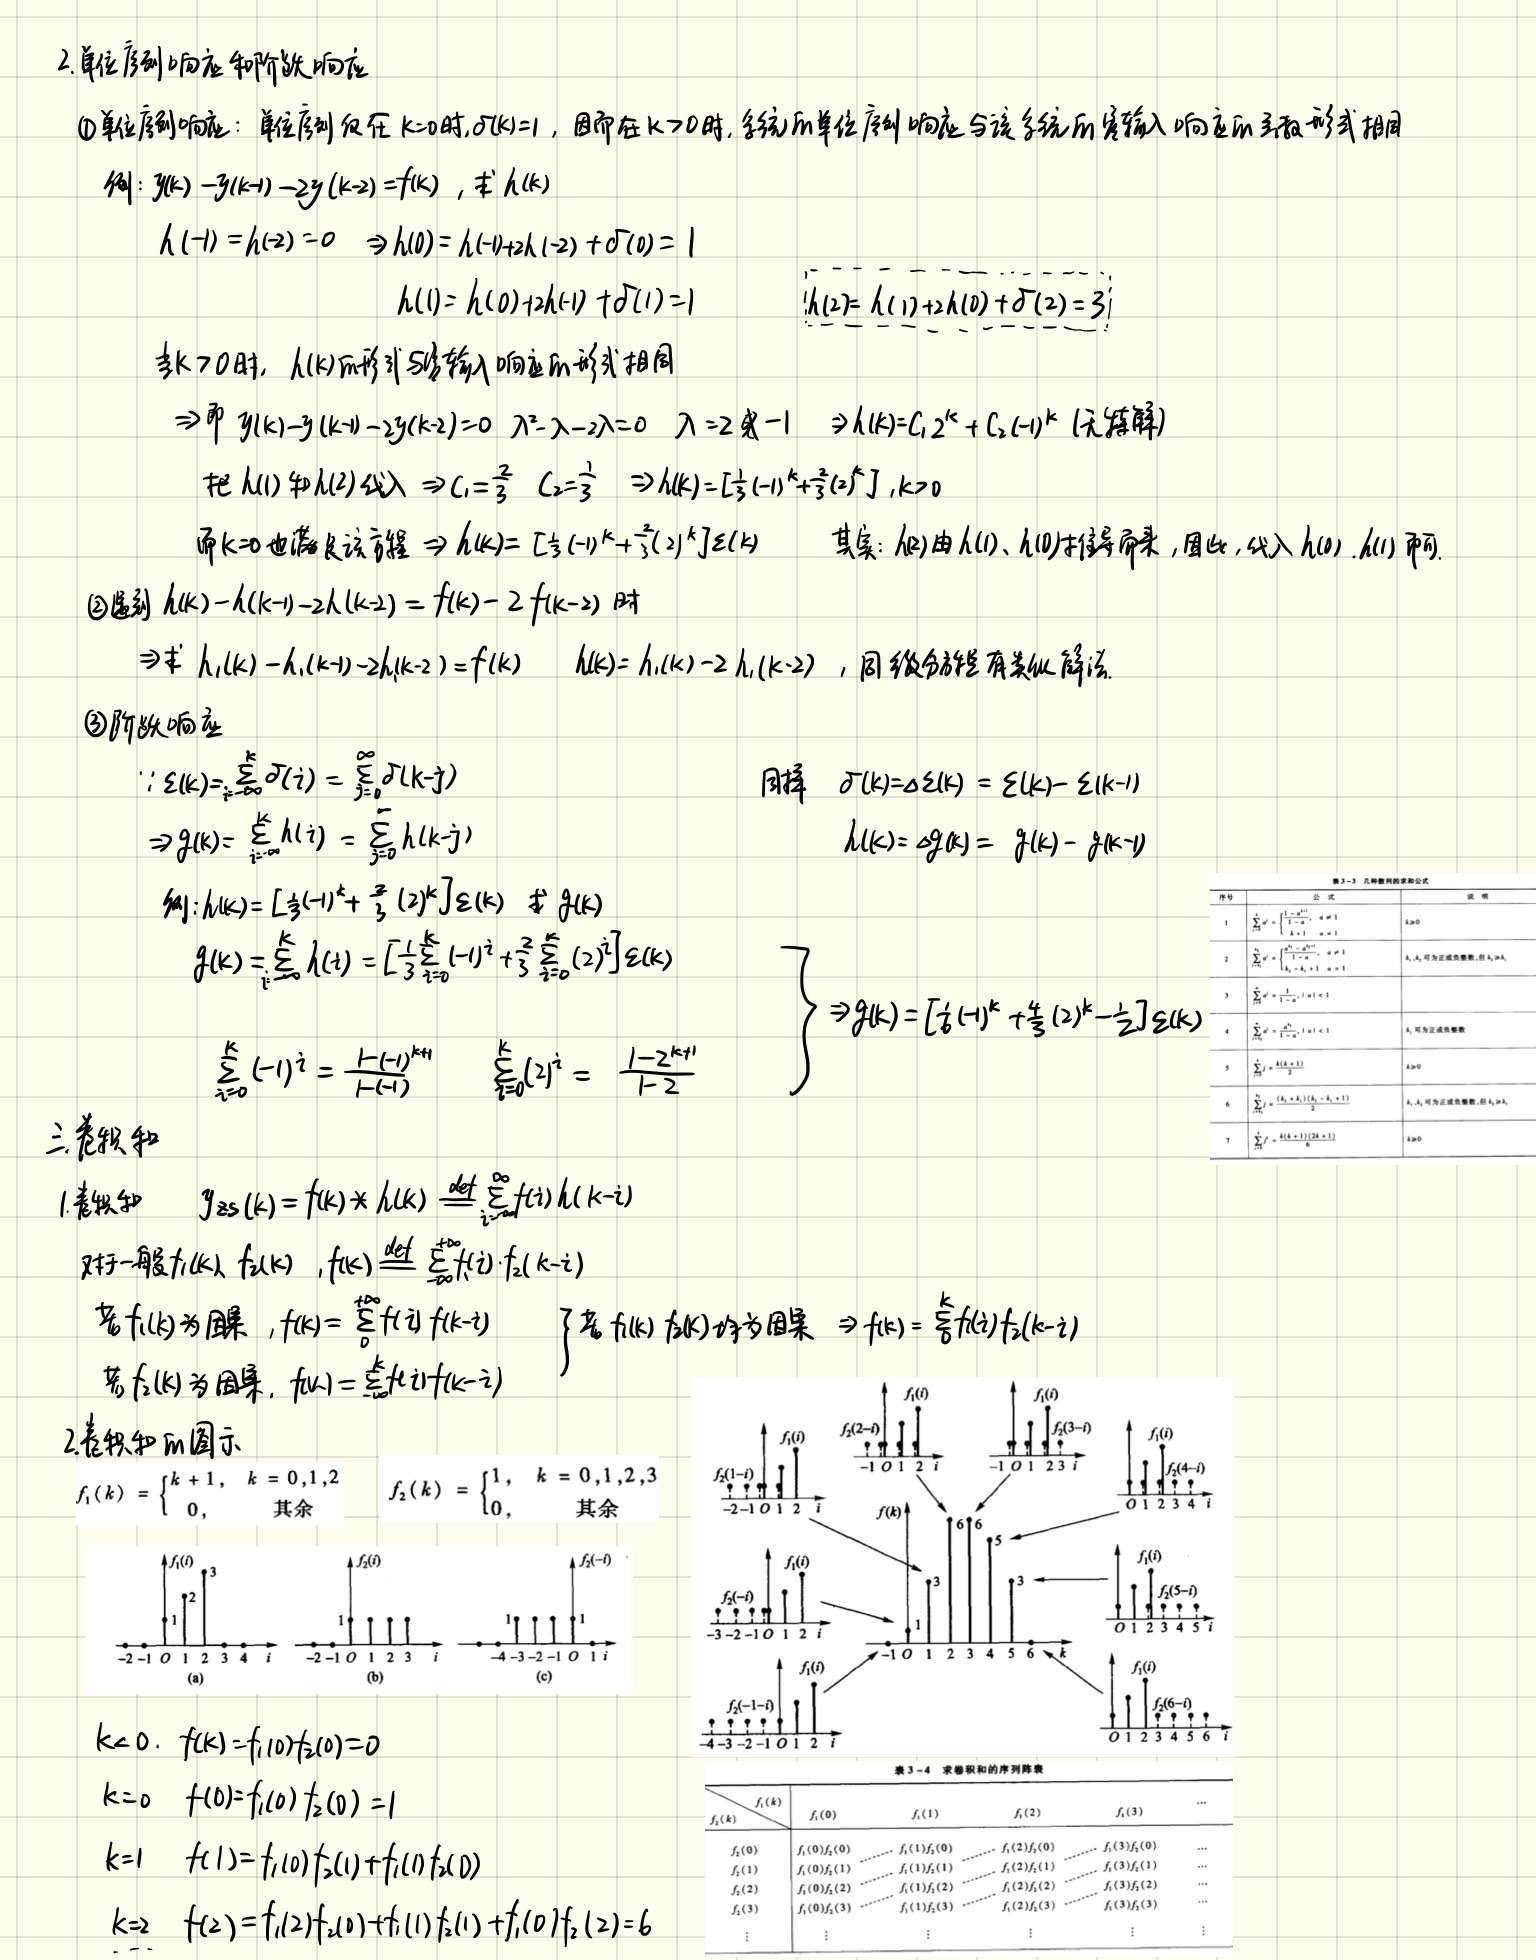 2.单位序列响应和阶跃响应
①单位序列响应：单位序列仅在k=0时,δ(k)=1，因而在k>0时,系统的单位序列响应与该系统的零输入响应的函数形式相同
例：y(k)-y(k-1)-2y(k-2)=f(k)，求h(k)
h(-1)=h(-2)=0 ⇒h(0)=h(-1)+2h(-2)+δ(0)=1
h(1)=h(0)+2h(-1)+δ(1)=1 h(2)=h(1)+2h(0)+δ(2)=3
当k>0时，h(k)的形式与零输入响应的形式相同
⇒即 y(k)-y(k-1)-2y(k-2)=0 λ²-λ-2λ=0 λ=2或-1 ⇒h(k)=C₁2ᵏ+C₂(-1)ᵏ (无特解)
把h(1)和h(2)代入⇒C₁=2/3 C₂=1/3 ⇒h(k)=[1/3(-1)ᵏ+2/3(2)ᵏ],k>0
而k=0也满足该方程⇒h(k)=[1/3(-1)ᵏ+2/3(2)ᵏ]ε(k) 其实：h(2)由h(1)、h(0)推导而来，因此，代入h(0).h(1)即可.
②遇到 h(k)-h(k-1)-2h(k-2)=f(k)-2f(k-2)时
⇒求 h₁(k)-h₁(k-1)-2h₁(k-2)=f(k) h(k)=h₁(k)-2h₁(k-2)，同微分方程有类似解法.
③阶跃响应
∵ε(k)=∑_{i=-∞}^{k}δ(i)=∑_{j=0}^{∞}δ(k-j) 同样 δ(k)=Δε(k)=ε(k)-ε(k-1)
⇒g(k)=∑_{i=-∞}^{k}h(i)=∑_{j=0}h(k-j) h(k)=Δg(k)=g(k)-g(k-1)
例:h(k)=[1/3(-1)ᵏ+2/3(2)ᵏ]ε(k) 求g(k)
g(k)=∑_{i=-∞}^{k}h(i)=[1/3∑_{i=0}^{k}(-1)ⁱ+2/3∑_{i=0}^{k}(2)ⁱ]ε(k)
⇒g(k)=[1/6(-1)ᵏ+4/3(2)ᵏ-1/2]ε(k)
∑_{i=0}^{k}(-1)ⁱ=(1-(-1)^{k+1})/(1-(-1)) ∑_{i=0}^{k}(2)ⁱ=(1-2^{k+1})/(1-2)
表3-3 几种数列的求和公式
序号 公式 说明
1 k≥0
2 k₁,k₂可为正或负整数,但k₂≥k₁
3
4 k₁可为正或负整数
5 k≥0
6 k₁,k₂可为正或负整数,但k₂≥k₁
7 k≥0
三.卷积和
1.卷积和 y_zs(k)=f(k)*h(k) def= ∑_{i=-∞}^{∞}f(i)h(k-i)
对于一般f₁(k)、f₂(k)，f(k) def= ∑_{-∞}^{+∞}f₁(i)·f₂(k-i)
若f₁(k)为因果，f(k)=∑_{0}^{+∞}f(i)f(k-i)
若f₂(k)为因果，f(k)=∑_{-∞}^{k}f(i)f(k-i)
若f₁(k) f₂(k)均为因果 ⇒f(k)=∑_{0}^{k}f₁(i)f₂(k-i)
2.卷积和的图示
f₁(k)={k+1, k=0,1,2
0, 其余
f₂(k)={1, k=0,1,2,3
0, 其余
f₁(i) 1 2 3
-2 -1 O 1 2 3 4 i
(a)
f₂(i) 1
-2 -1 O 1 2 3 i
(b)
f₂(-i) 1 1
-4 -3 -2 -1 O 1 i
(c)
f₂(2-i) f₁(i)
-1 O 1 2 i
f₁(i) f₂(3-i)
-1 O 1 2 3 i
f₂(1-i) f₁(i)
-2 -1 O 1 2 i
f₁(i) f₂(4-i)
O 1 2 3 4 i
f₂(-i) f₁(i)
-3 -2 -1 O 1 2 i
f(k) 1 3 6 6 5 3
-1 O 1 2 3 4 5 6 k
f₁(i) f₂(5-i)
O 1 2 3 4 5 i
f₂(-1-i) f₁(i)
-4 -3 -2 -1 O 1 2 i
f₁(i) f₂(6-i)
O 1 2 3 4 5 6 i
k<0. f(k)=f₁(0)f₂(0)=0
k=0 f(0)=f₁(0)f₂(0)=1
k=1 f(1)=f₁(0)f₂(1)+f₁(1)f₂(0)
k=2 f(2)=f₁(2)f₂(0)+f₁(1)f₂(1)+f₁(0)f₂(2)=6
表3-4 求卷积和的序列阵表
f₂(k) f₁(k) f₁(0) f₁(1) f₁(2) f₁(3) …
f₂(0) f₁(0)f₂(0) f₁(1)f₂(0) f₁(2)f₂(0) f₁(3)f₂(0) …
f₂(1) f₁(0)f₂(1) f₁(1)f₂(1) f₁(2)f₂(1) f₁(3)f₂(1) …
f₂(2) f₁(0)f₂(2) f₁(1)f₂(2) f₁(2)f₂(2) f₁(3)f₂(2) …
f₂(3) f₁(0)f₂(3) f₁(1)f₂(3) f₁(2)f₂(3) f₁(3)f₂(3) …
⋮ ⋮ ⋮ ⋮ ⋮ ⋮